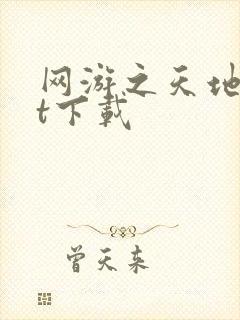 网游之天地
t下载
曾天东